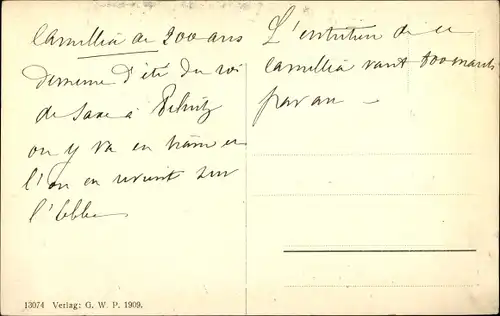 Camellia de 200 ans
demeure d'été du roi
de Saxe à Pilnitz
on y va en train et
l'on en revient sur
l'Elbe
L'entretien de ce
camellia vaut 800 marks
par an
13074 Verlag: G. W. P. 1909.